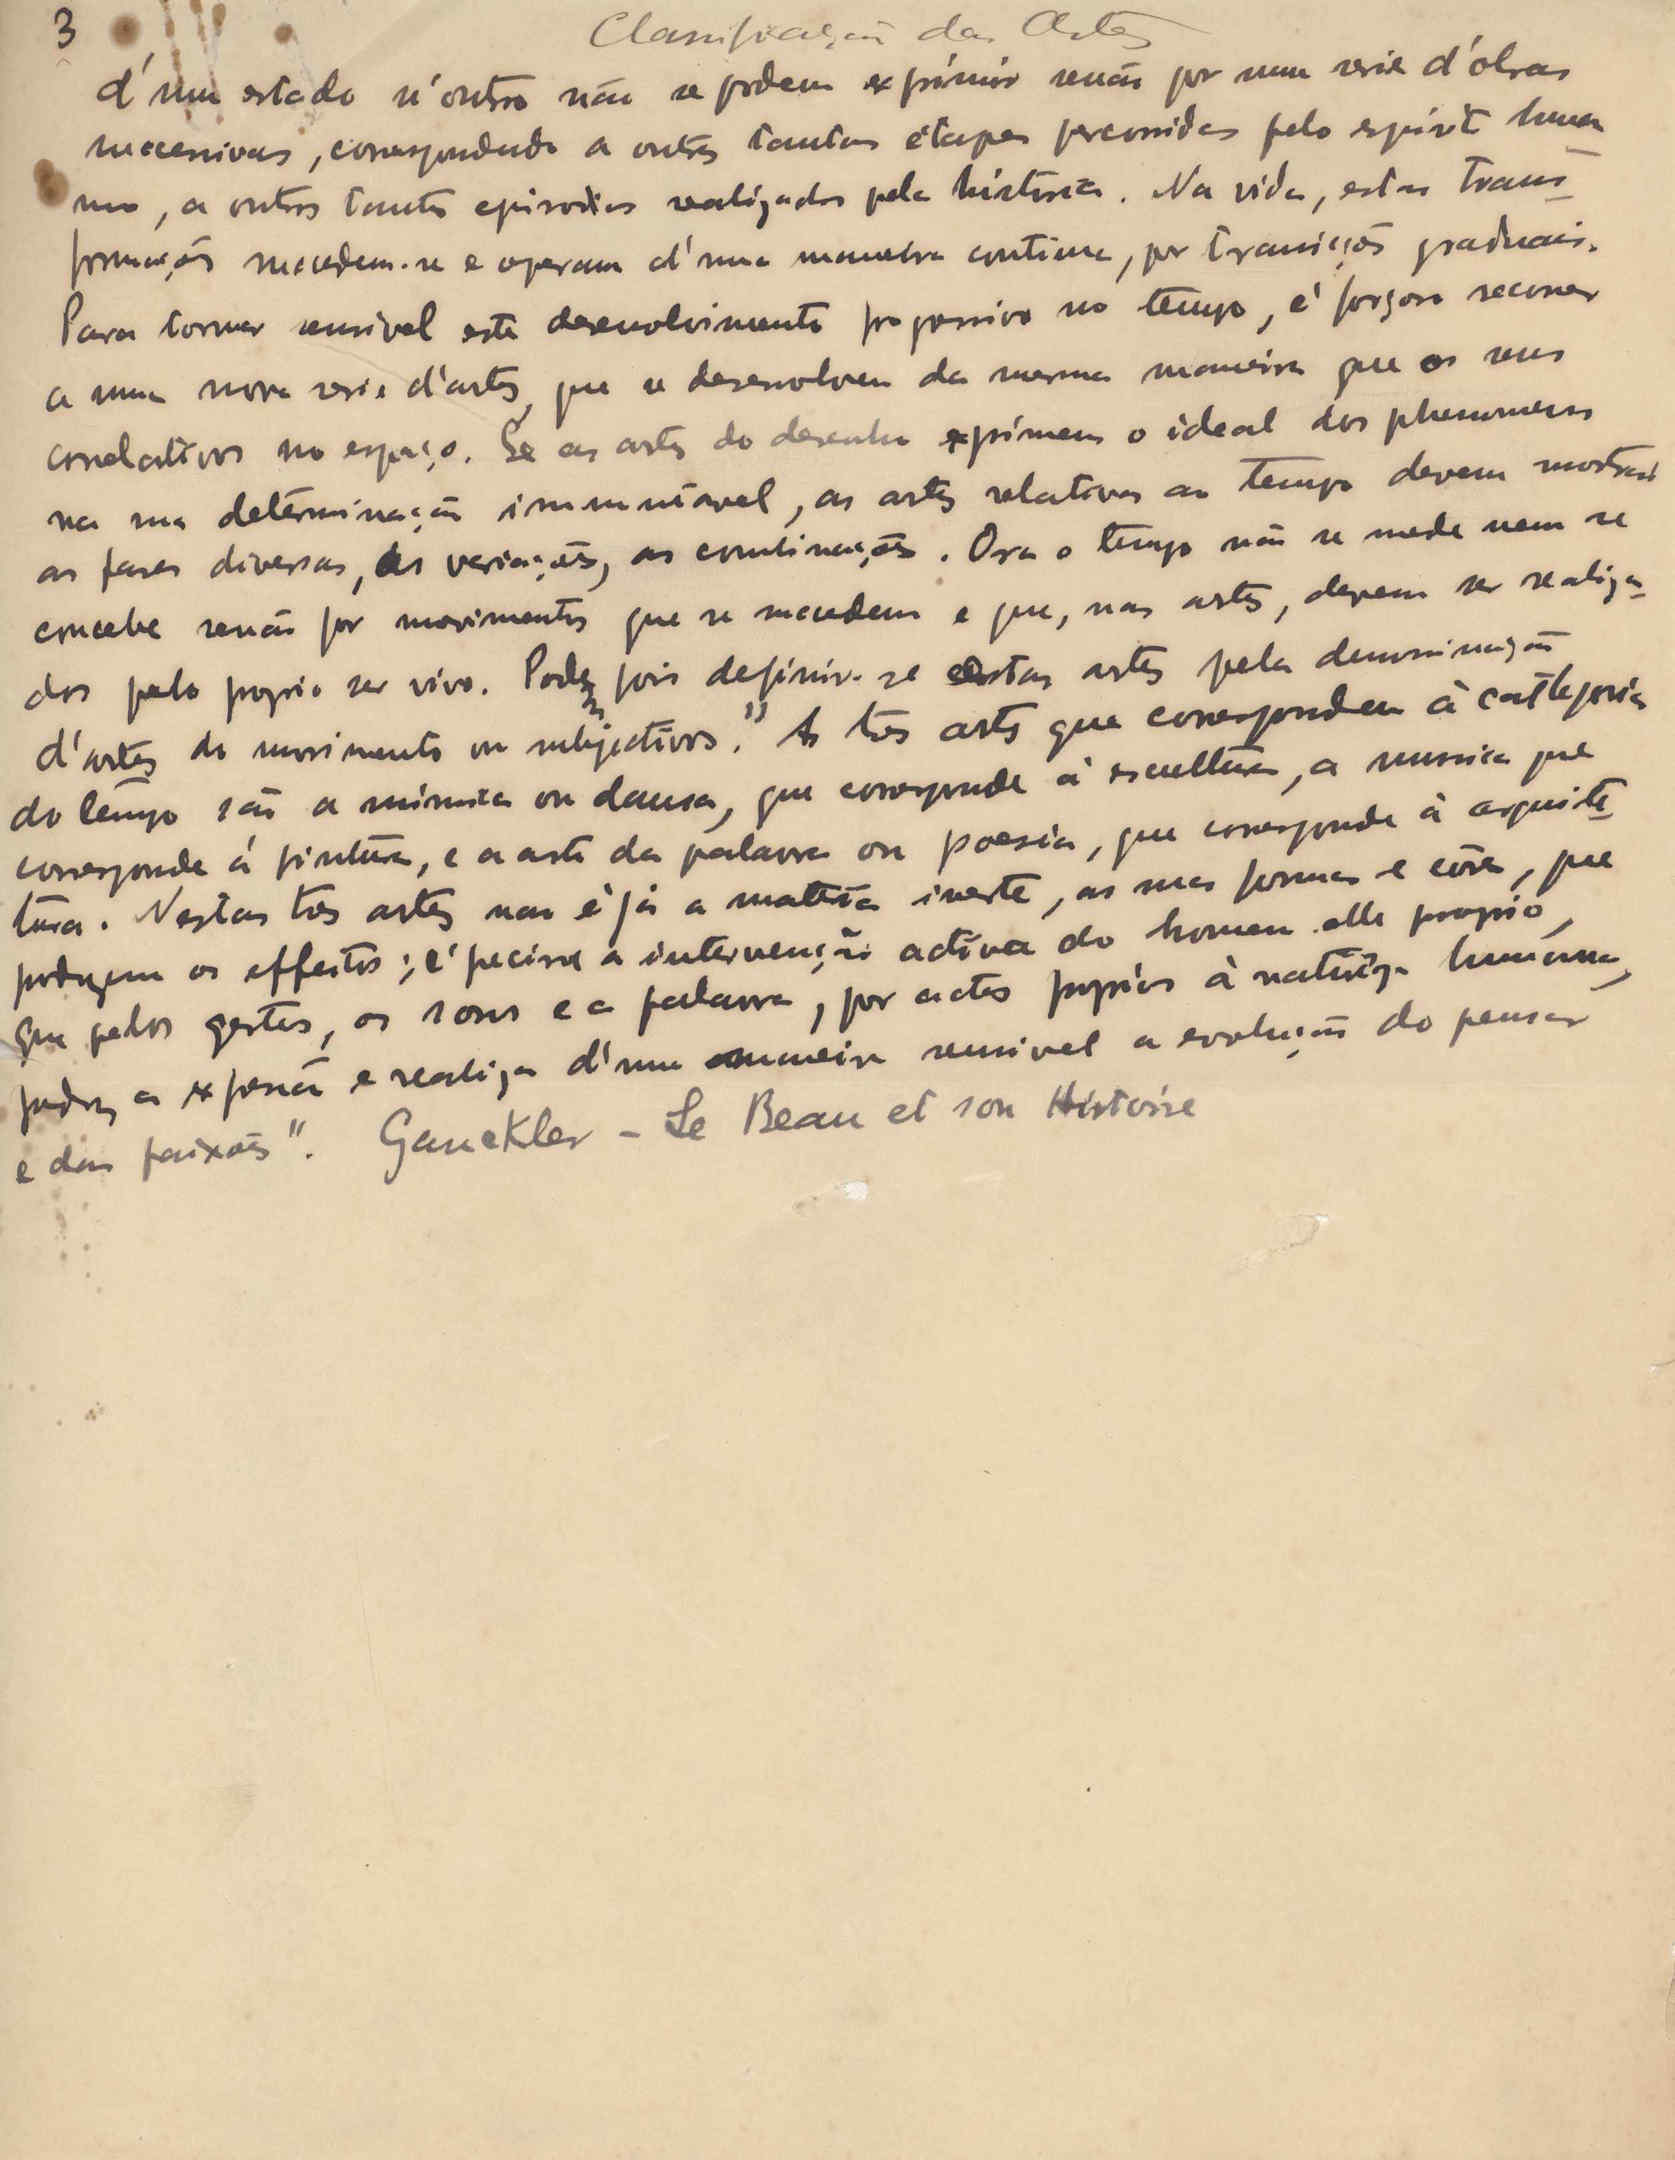 3
Classificação das Artes
d'um estado n'outro não se podem exprimir senão por uma serie d'obras
successivas, correspondendo a outras tantas étapes percorridas pelo espirito huma-
no, a outros tantos episodios realizados pela historia. Na vida, estas trans-
formações succedem-se e operam d'uma maneira continua, por transições graduais.
Para tornar sensivel este desenvolvimento progressivo no tempo, é forçoso recorrer
a uma nova serie d'artes, que se desenvolvem da mesma maneira que os seus
correlativos no espaço. Se as artes do desenho exprimem o ideal dos phenomenos
na sua determinação immutavel, as artes relativas ao tempo devem mostrar
as fases diversas, as variações, as combinações. Ora o tempo não se mede nem se
concebe senão por movimentos que se succedem e que, nas artes, devem ser realiza-
dos pelo proprio ser vivo. Podem pois definir-se estas artes pela denominação
d'artes do movimento ou subjectivas." As tres artes que correspondem à cathegoria
do tempo são a mimica ou dansa, que corresponde á escultura, a musica que
corresponde á pintura, e a arte da palavra ou poesia, que corresponde à arquite-
tura. Nestas tres artes nao é já a materia inerte, as suas formas e côres, que
produzem os effeitos; é precisa a intervenção activa do homem elle proprio,
que pelos gestos, os sons e a palavra, por actos proprios à natureza humana,
produz a expressão e realiza d'uma maneira sensivel a evolução do pensar
e das paixões". Gauckler – Le Beau et son Histoire